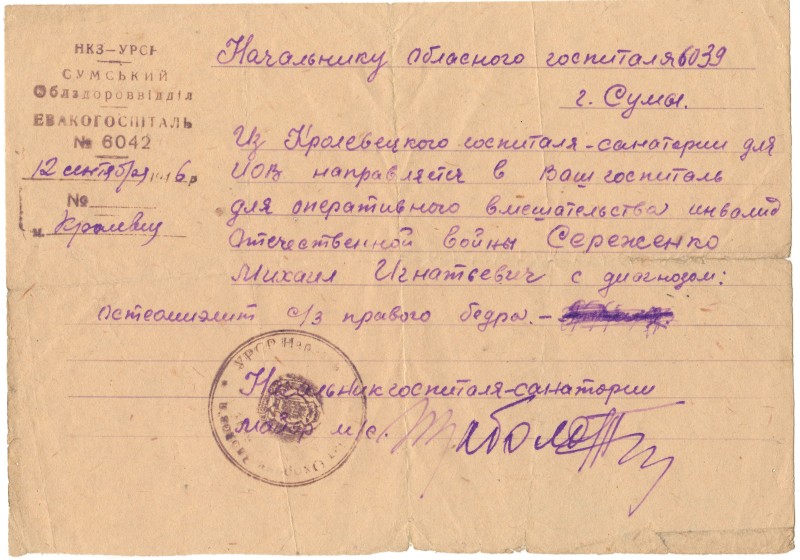 НКЗ–УРСР
СУМСЬКИЙ
Облздороввідділ
ЕВАКОГОСПІТАЛЬ
№ 6042
12 сентября 1946 р
№
м. Кролевец
Начальнику обласного госпиталя 6039
г. Сумы.
Из Кролевецкого госпиталя-санатории для
ИОВ направляется в Ваш госпиталь
для оперативного вмешательства инвалид
Отечественной войны Сереженко
Михаил Игнатьевич с диагнозом:
Остеомиэлит с/з правого бедра. –
Начальник госпиталя-санатории
майор м/с.
УРСР